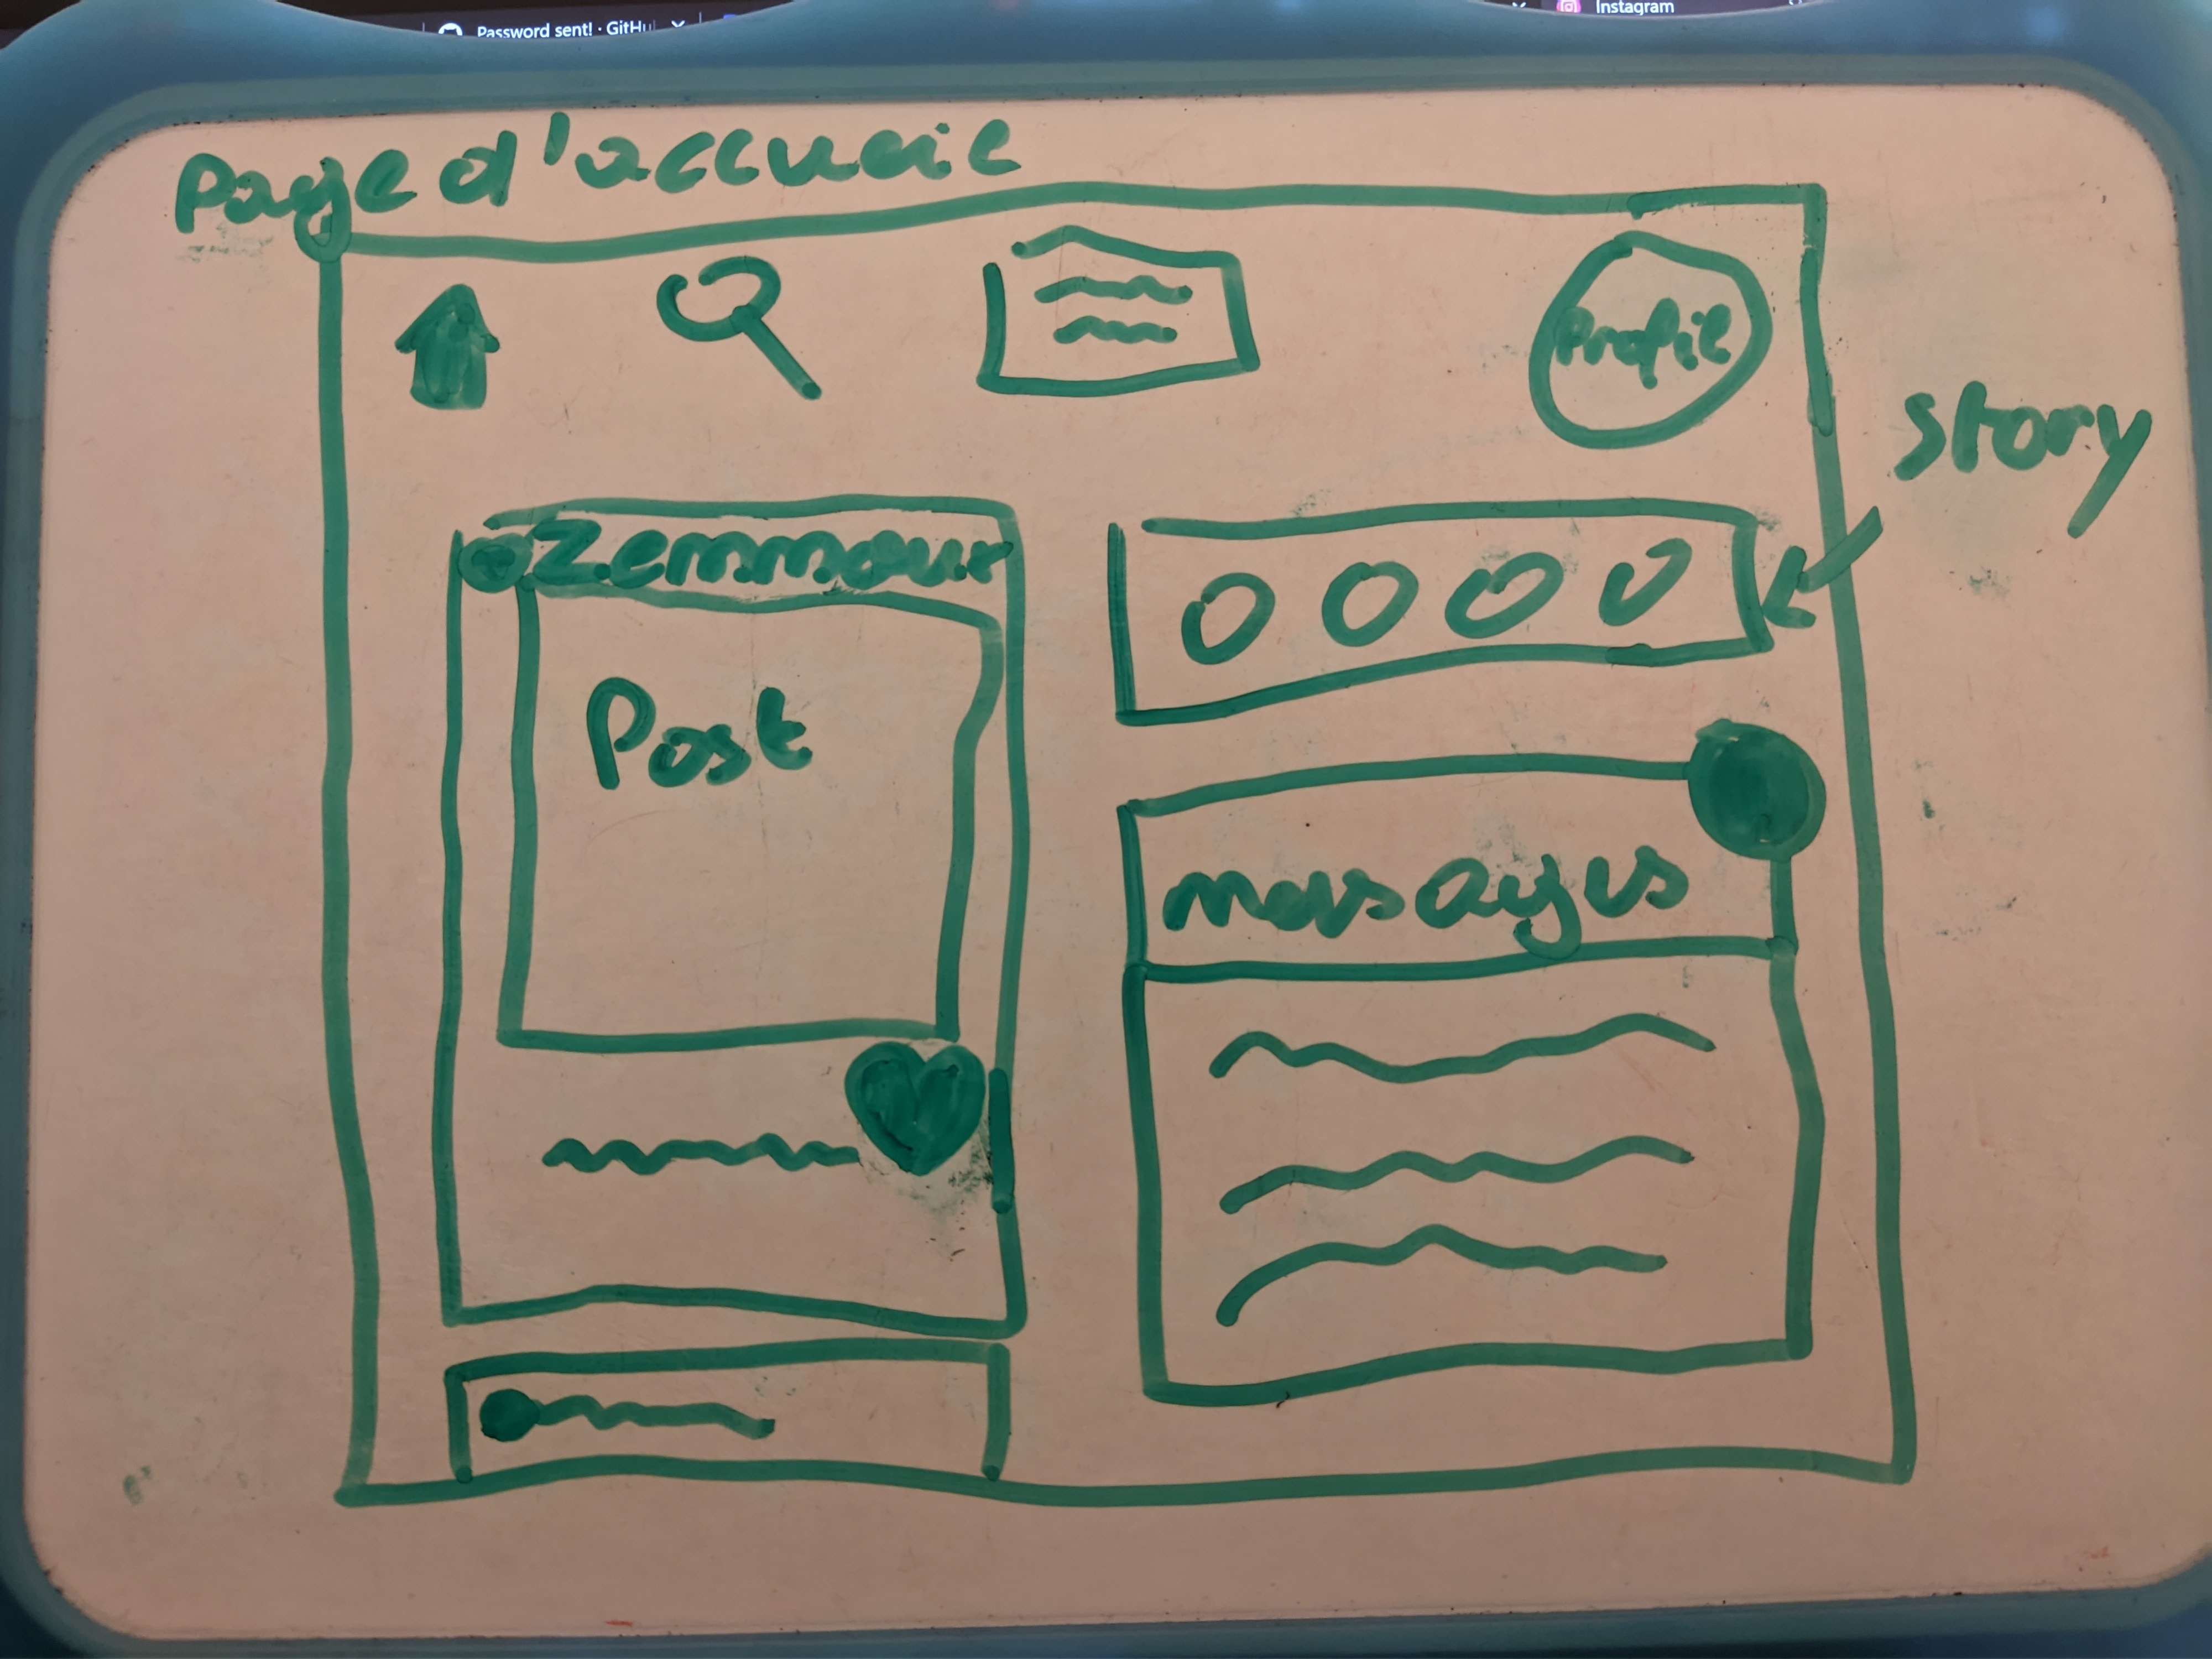 Password sent! · GitHu
Instagram
Page d'accueil
Profil
story
Zemmour
Post
messages